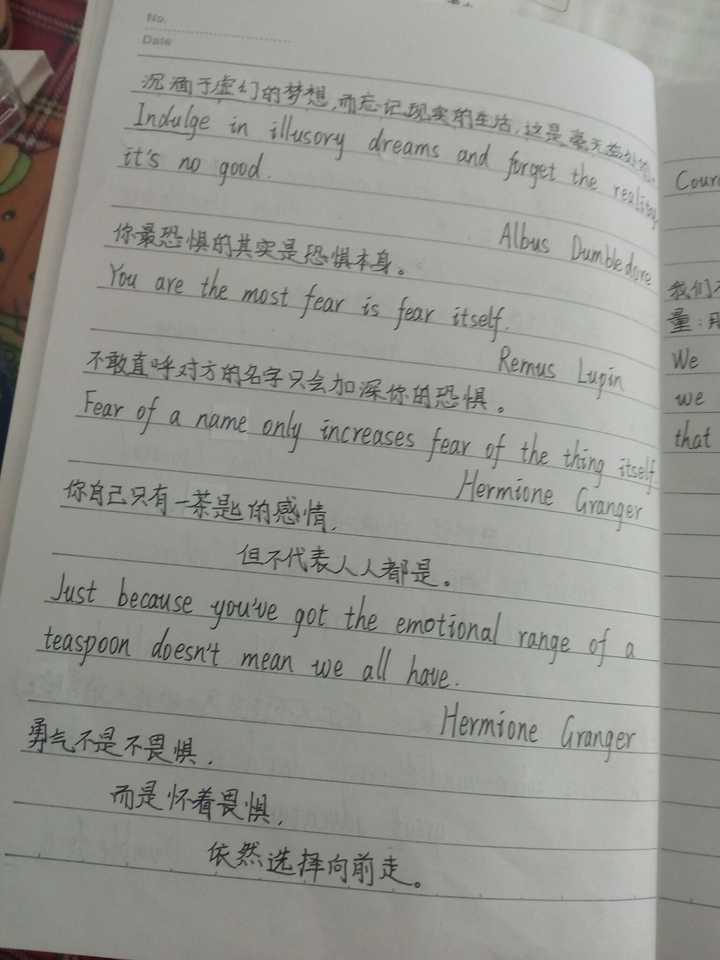 No.
Date
沉湎于虚幻的梦想,而忘记现实的生活,这是毫无益处的。
Indulge in illusory dreams and forget the reality
it's no good.
Albus Dumbledore
你最恐惧的其实是恐惧本身。
You are the most fear is fear itself.
Remus Lupin
不敢直呼对方的名字只会加深你的恐惧。
Fear of a name only increases fear of the thing itself
Hermione Granger
你自己只有一茶匙的感情,
但不代表人人都是。
Just because you've got the emotional range of a
teaspoon doesn't mean we all have.
Hermione Granger
勇气不是不畏惧,
而是怀着畏惧,
依然选择向前走。
我们
量:
We
we
that